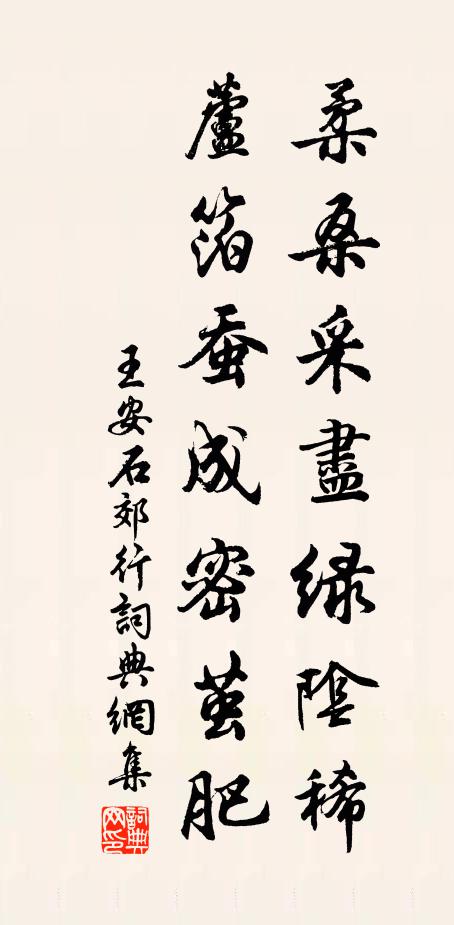 柔桑采盡綠陰稀
蘆箔蚕成密茧肥
王安石郊行詞典網集
詞典网印